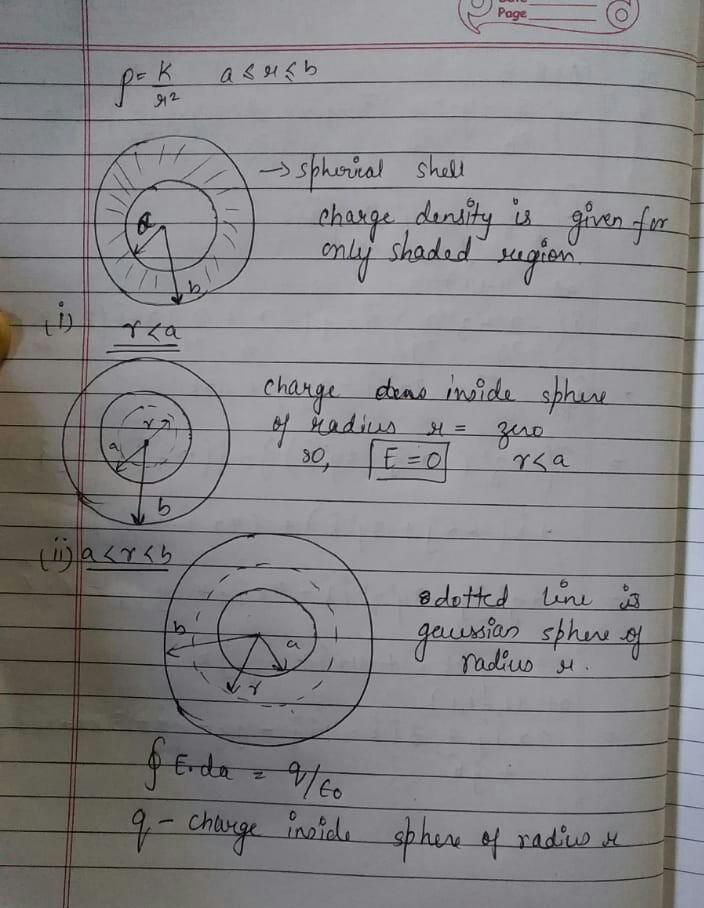 Page
ρ = K/r² a ≤ r ≤ b
a
b
→ spherical shell
charge density is given for
only shaded region.
(i) r < a
r
a
b
charge inside sphere
of radius r = zero
so, E = 0 r < a
(ii) a < r < b
b
a
r
dotted line is
gaussian sphere of
radius r.
∮ E. da = q/ε0
q - charge inside sphere of radius r